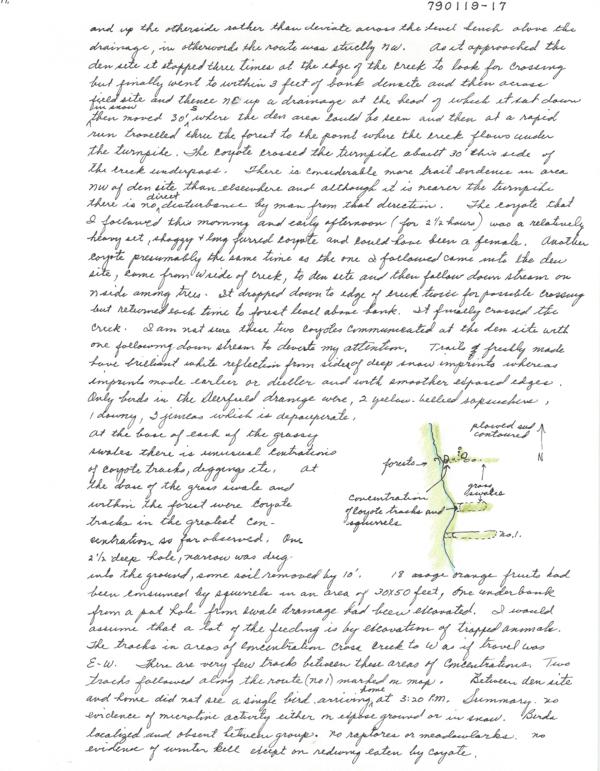 790119-17
and up the otherside rather than deviate across the level bench above the
drainage, in otherwords the route was strictly NW. As it approached the
den site it stopped three times at the edge of the creek to look for crossing
but finally went to within 3 feet of bank densite and then across
field site and thence NE up a drainage at the head of which it sat down
in snow
then moved 30', where the den area could be seen and then at a rapid
run travelled thru the forest to the point where the creek flows under
the turnpike. The coyote crossed the turnpike about 30' this side of
the creek underpass. There is considerable more trail evidence in area
NW of den site than elsewhere and although it is nearer the turnpike
direct
there is no disturbance by man from that direction. The coyote that
I followed this morning and early afternoon (for 2 1/2 hours) was a relatively
heavy set, shaggy + long furred coyote and could have been a female. Another
coyote presumably the same time as the one I followed came into the den
site, came from W side of creek, to den site and then follow down stream on
N side among trees. It dropped down to edge of creek twice for possible crossing
but returned each time to forest level above bank. It finally crossed the
creek. I am not sure these two coyotes communicated at the den site with
one following down stream to deverte my attention. Trails of freshly made
have brilliant white reflection from sides of deep snow imprints whereas
imprints made earlier or duller and with smoother exposed edges.
Only birds in the Deerfield drainge were, 2 yellow-bellied sapsuckers,
1 downy, 3 juncos which is depauperate.
At the base of each of the grassy
swales there is unusual
of coyote tracks, diggings etc. At
the base of the grass swale and
within the forest were coyote
tracks in the greatest con-
sentration so far observed. One
2 1/2 deep hole, narrow was dug
plowed and
contoured
N
forests
grass
swales
concentration
of coyote tracks and
squirrels
no.1.
into the ground, some soil removed by 10'. 18 osage orange fruits had
been consumed by squirrels in an area of 30X50 feet, one underbank
from a pot hole from swale drainage had been excavated. I would
assume that a lot of the feeding is by excavation of trapped animals.
The tracks in areas of concentration cross creek to W as if travel was
E-W. There are very few tracks between these areas of concentrations. Two
tracks followed along the route (no 1) marked on map. Between den site
home
and home did not see a single bird arriving at 3:20 P.M. Summary. no
evidence of microtine activity either in expose ground or in snow. Birds
localized and absent between group. no raptores or meadowlarks. no
evidence of winter kill except on redwing eaten by coyote.